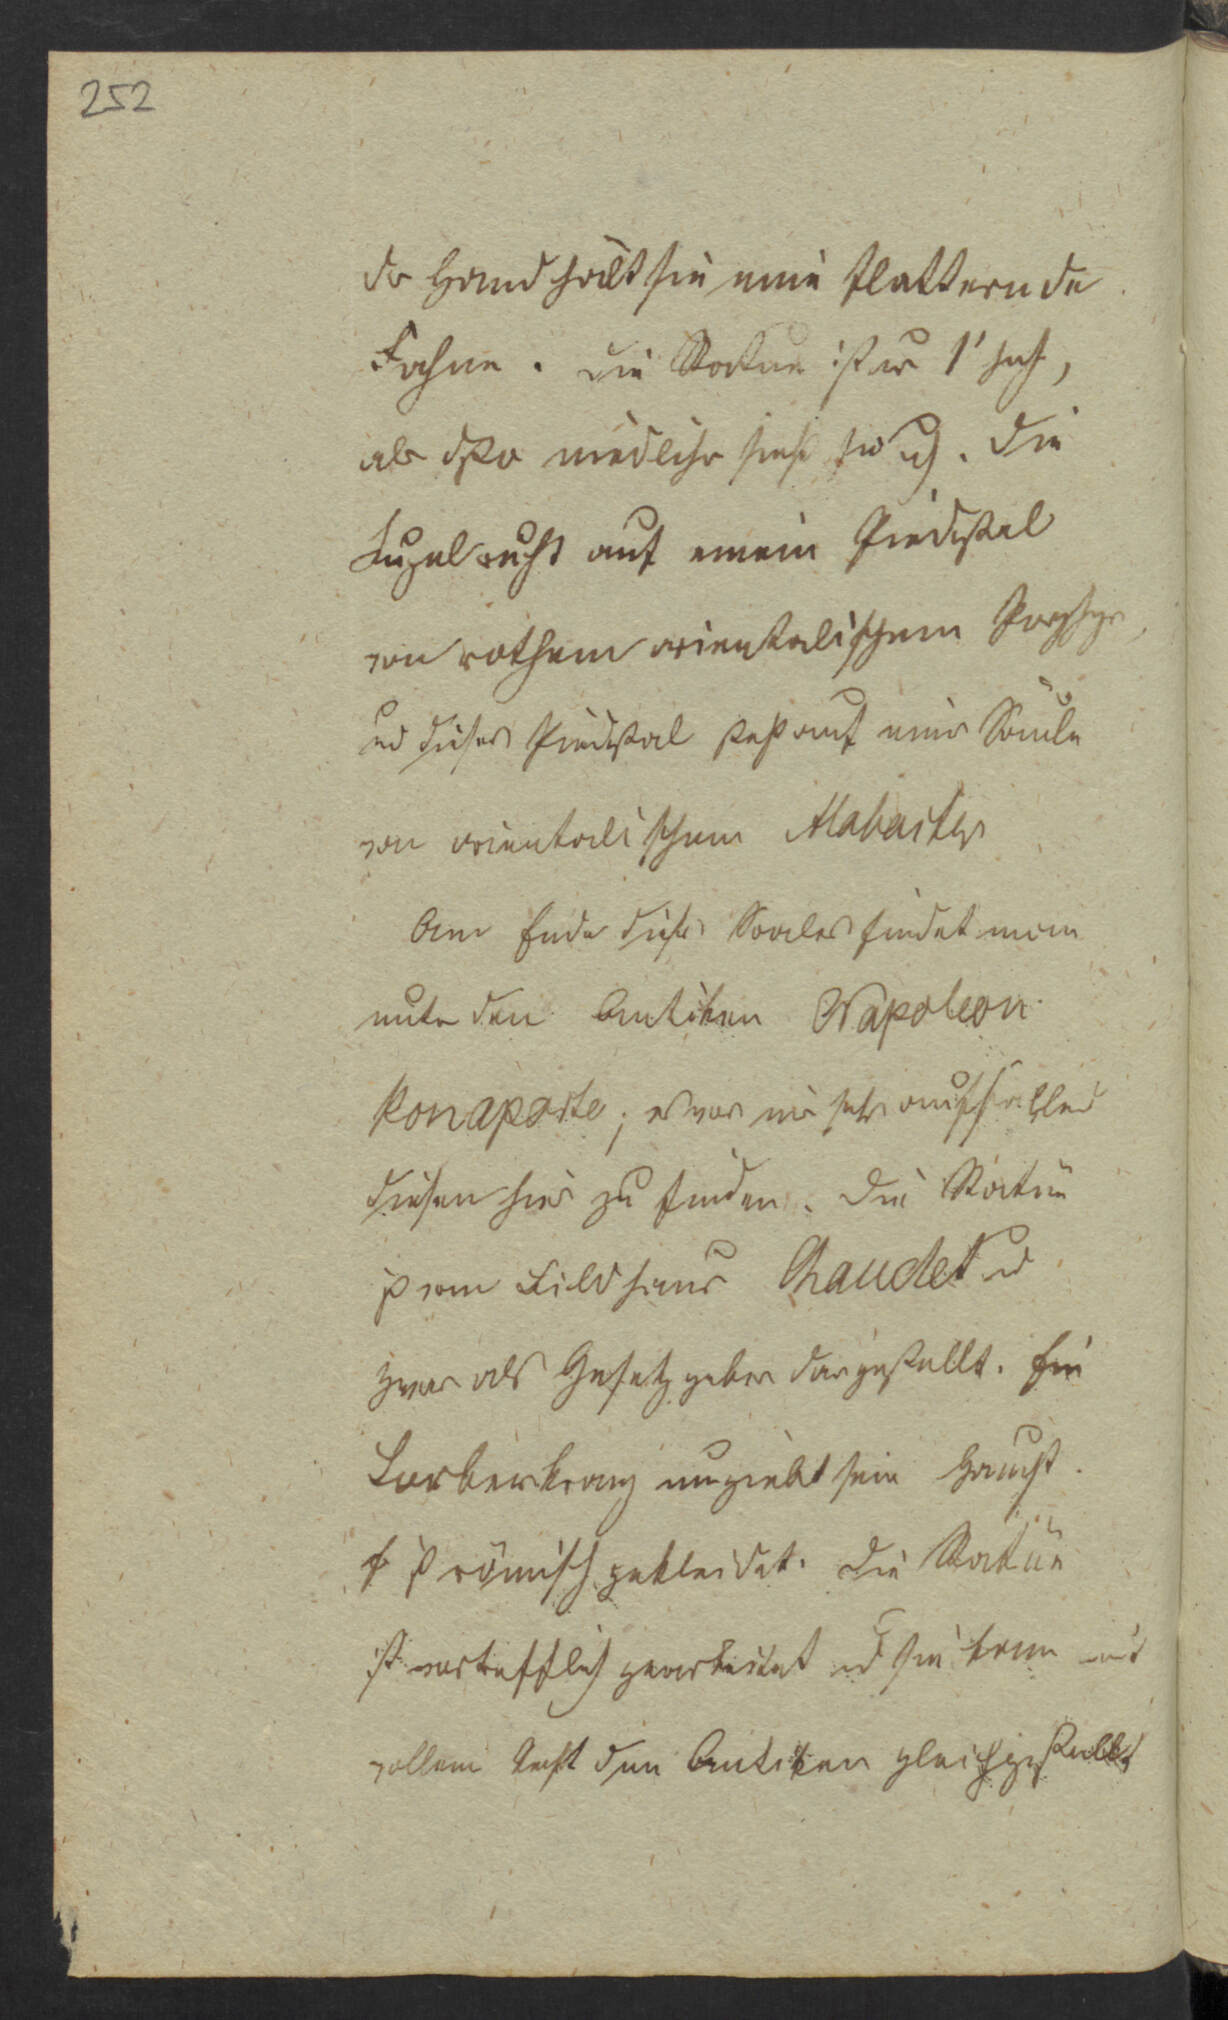 252
der Hand hält sie eine flatternde
Fahne. Die Statue ist nur 1' hoch,
aber desto niedlicher sieht sie aus. Die
Kugel ruht auf einem Piedestal
von rothem orientalischem Porphyr,
und dieses Piedestal steht auf einer Säule
von orientalischem Alabaster
Am Ende dieses Saales findet man
unter den Antiken Napoleon
Bonaparte; es war mir sehr auffallend
diesen hier zu finden. Die Statüe
ist vom Bildhauer Chaudet und
zwar als Gesetzgeber dargestellt. Ein
Lorberkranz umgiebt sein Haupt.
Er ist römisch gekleidet. Die Statüe
ist vortrefflich gearbeitet und sie kann mit
vollem Recht den Antiken gleichgestellt